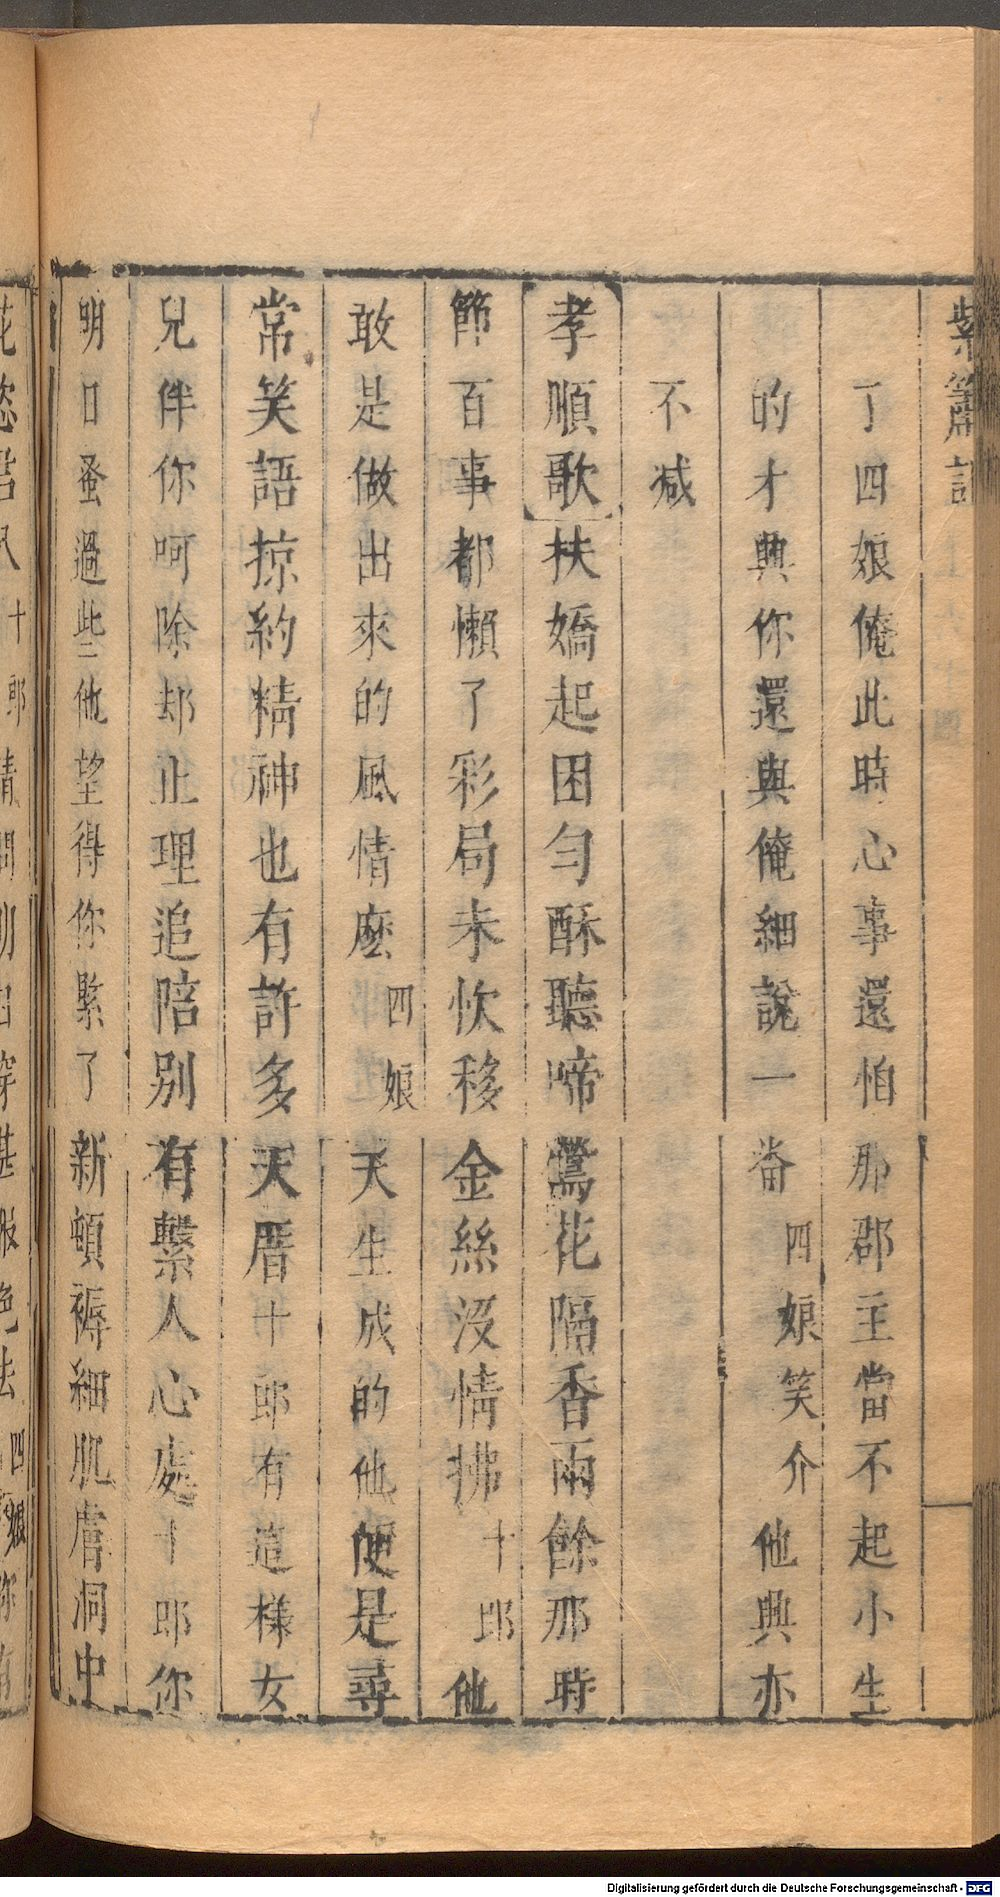 紫簫記
了四娘俺此時心事還怕那郡主當不起小生
的才興你還與俺細說一番四娘笑介他興亦
不減
孝順歌扶嬌起困勻酥聽啼鶯花隔香雨餘那時
節百事都懶了彩局未忺移金絲沒情拂十郎他
敢是做出來的風情麽四娘天生成的他便是尋
常笑語掠約精神也有許多天厝十郎有這樣女
兒伴你呵除却止理追陪別有繫人心處十郎你
明日蚤過些他望得你緊了新頓褥細肌膚洞中
十郎請問明日穿甚服色去四娘你
Digitalisierung gefördert durch die Deutsche Forschungsgemeinschaft - DFG